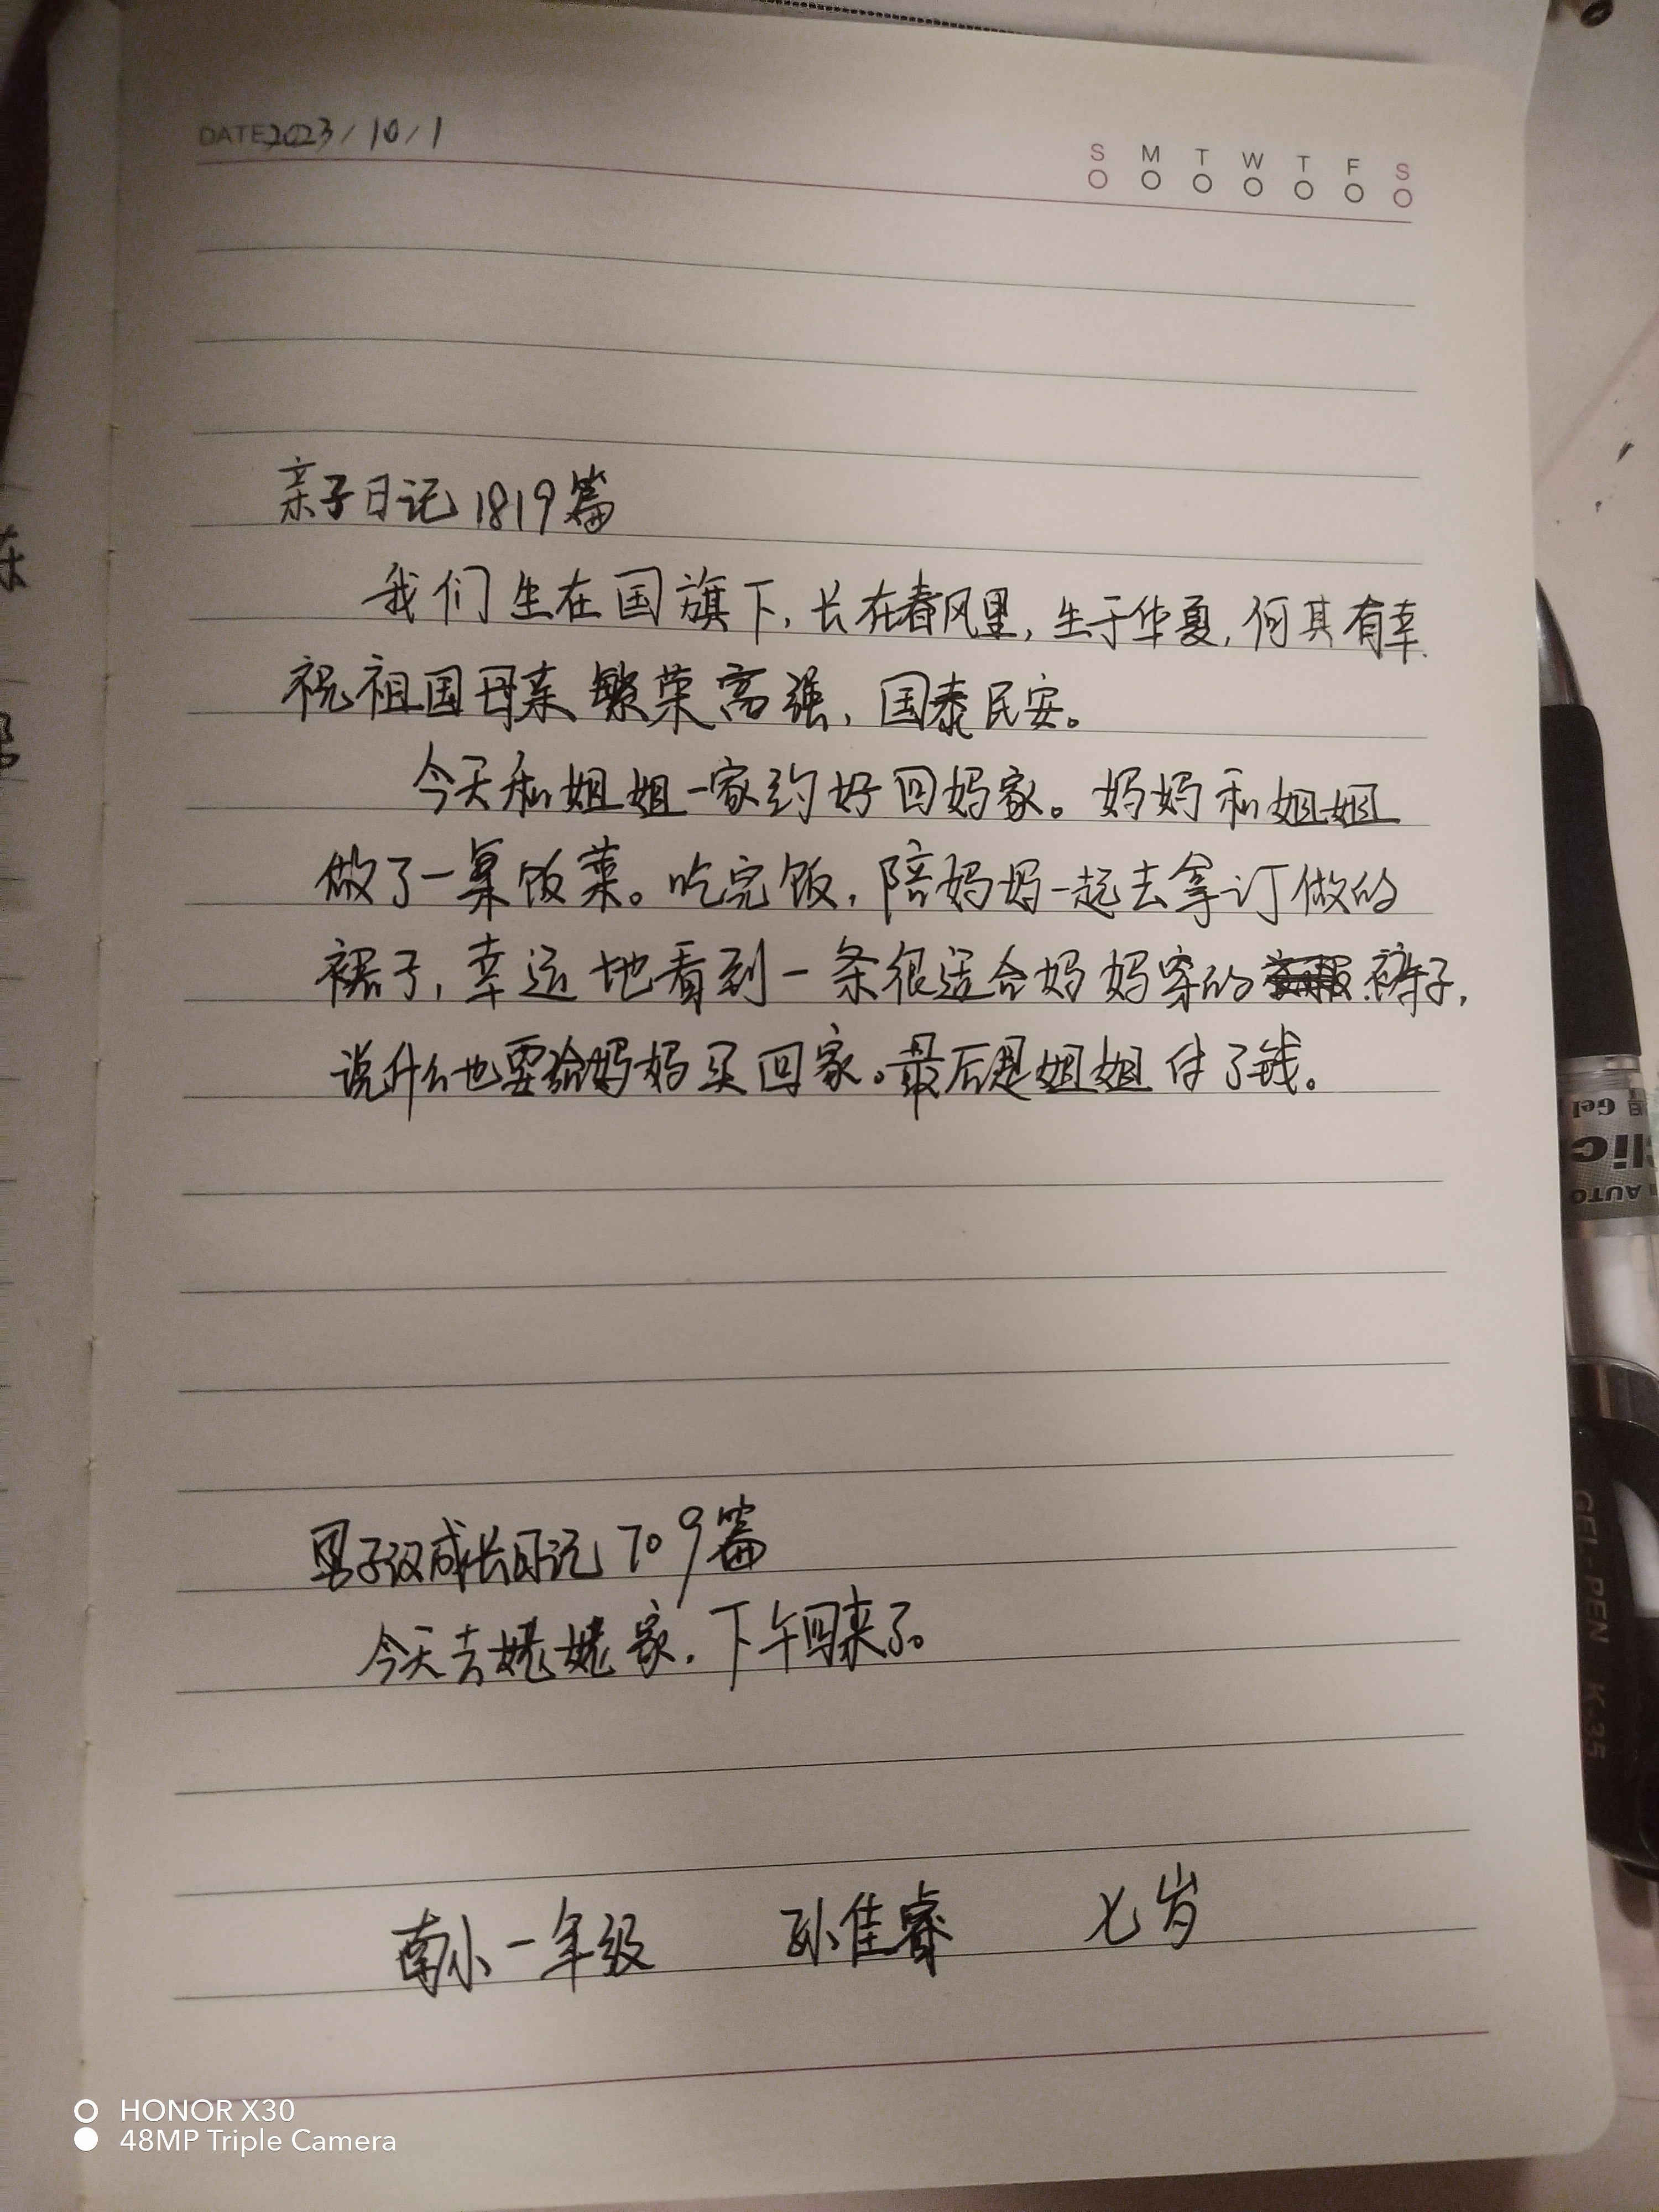 DATE 2023/10/1
S M T W T F S
亲子日记1819篇
我们生在国旗下,长在春风里,生于华夏,何其有幸.
祝祖国母亲繁荣富强,国泰民安。
今天和姐姐一家约好回妈家。妈妈和姐姐
做了一桌饭菜。吃完饭,陪妈妈一起去拿订做的
裙子,幸运地看到一条很适合妈妈穿的裤子,
说什么也要给妈妈买回家。最后是姐姐付了钱。
男子汉成长日记709篇
今天去姥姥家,下午回来了。
南小一年级 孙佳睿 七岁
Gel
clic
AUTO
GEL-PEN K-35
HONOR X30
48MP Triple Camera